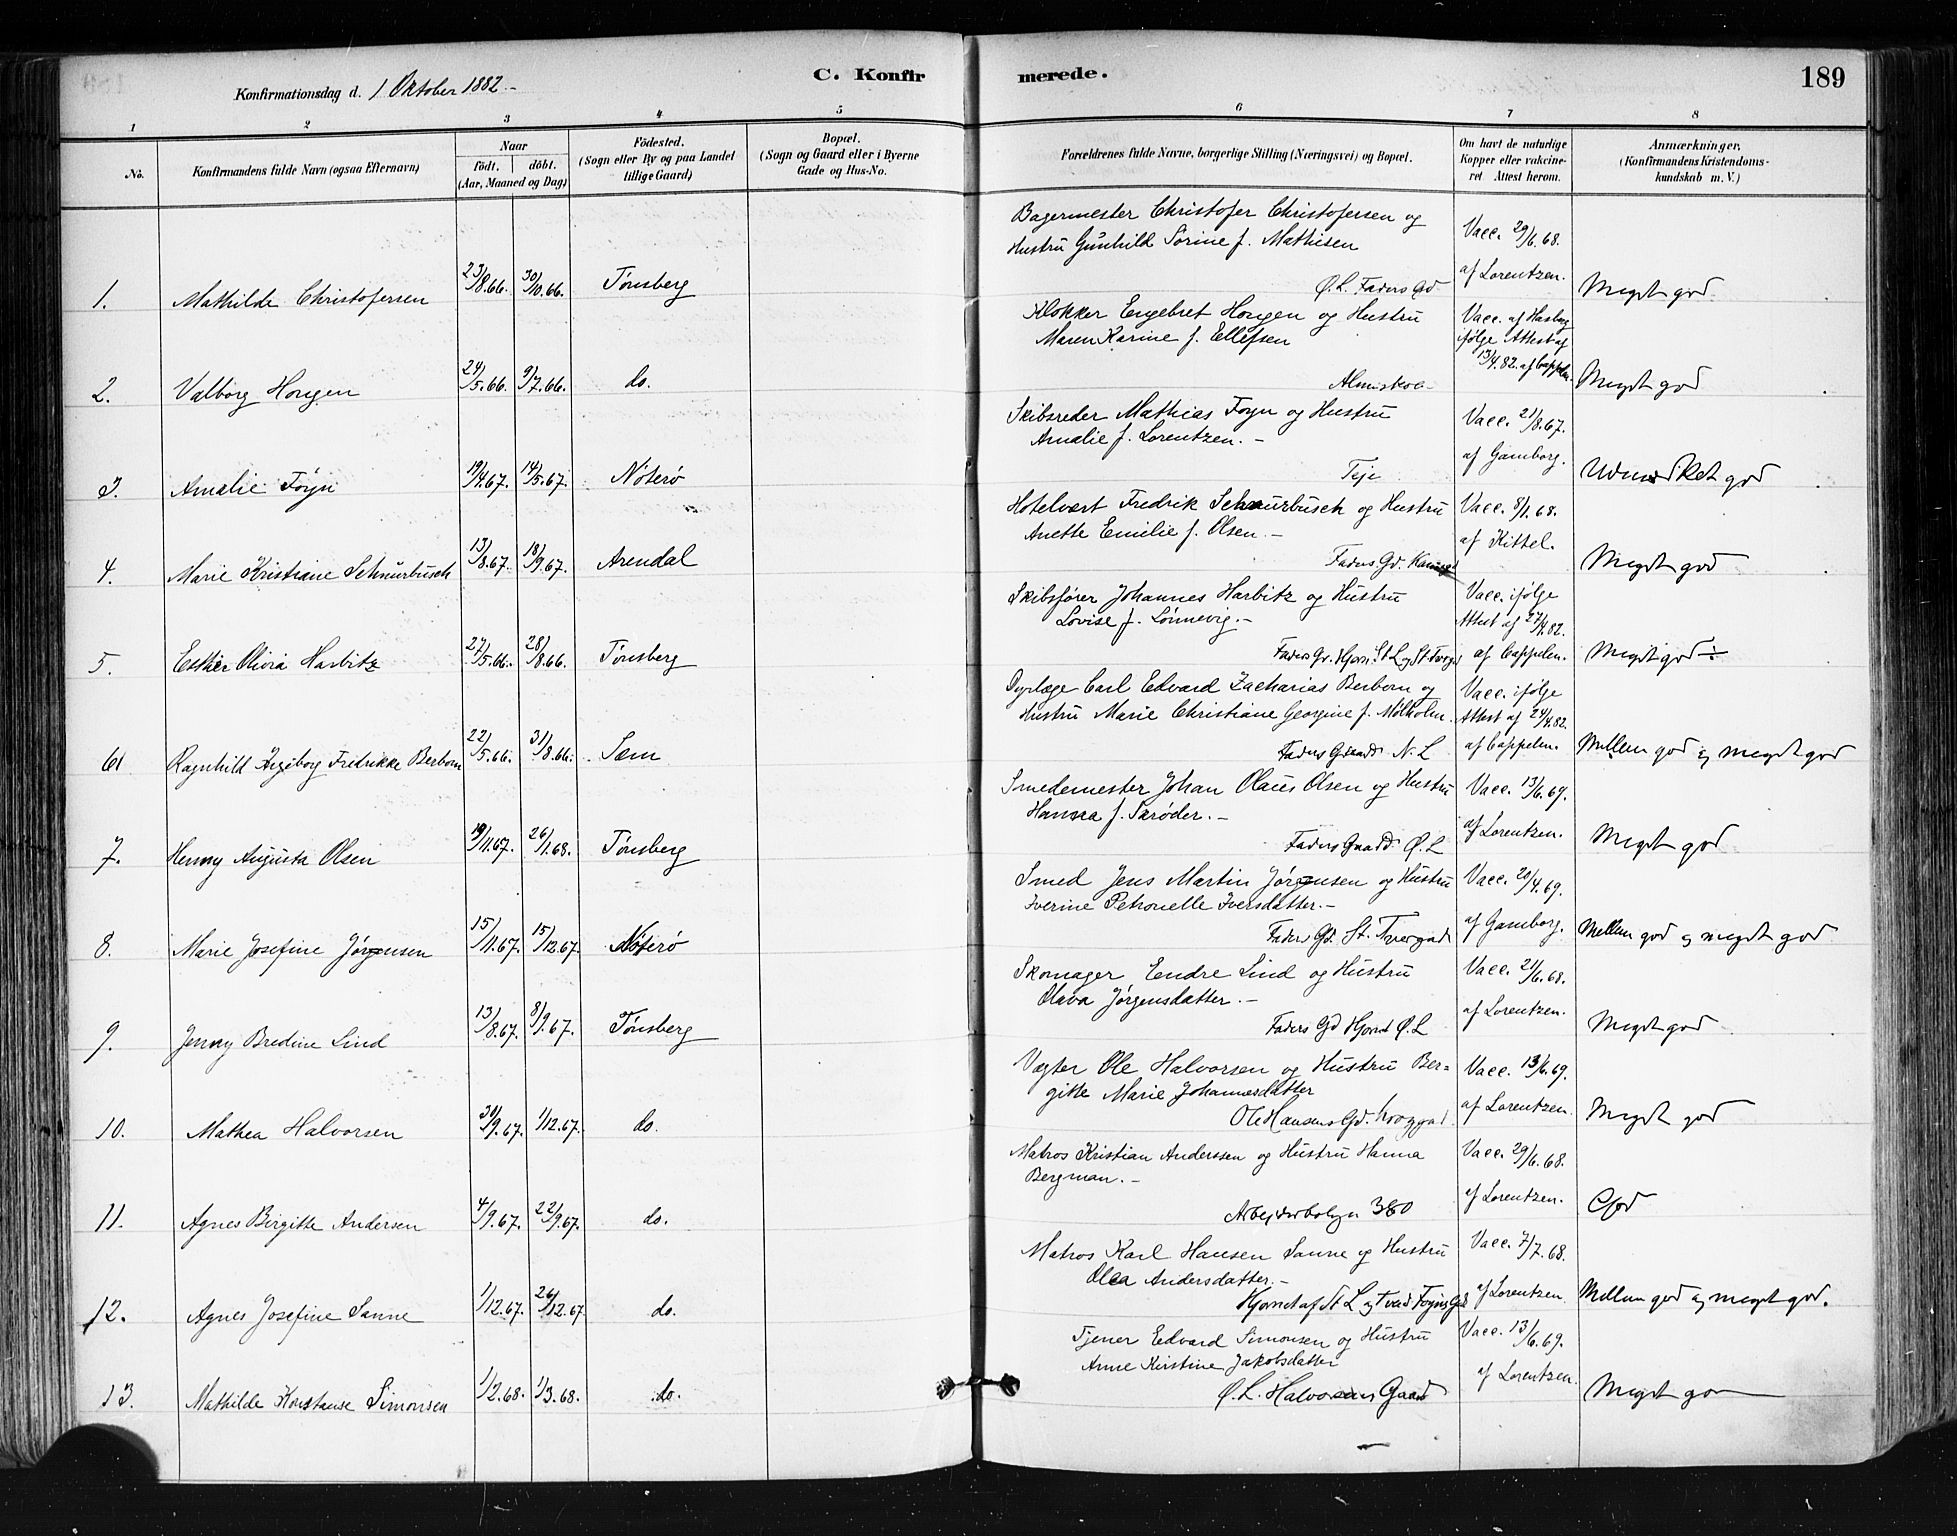 C. Konfirmerede.
189
Konfirmationsdag d. 1 Oktober 1882.-
1 2 3 4 5 6 7 8
No.
Konfirmandens fulde Navn (ogsaa Efternavn)
Naar
födt. döbt.
(Aar, Maaned og Dag)
Födested.
(Sogn eller By og paa Landet
tillige Gaard)
Bopæl.
(Sogn og Gaard eller i Byerne
Gade og Hus-No.
Forældrenes fulde Navne, borgerlige Stilling (Næringsvei) og Bopæl.
Om havt de naturlige
Kopper eller vakcine-
ret Attest herom.
Anmærkninger,
(Konfirmandens Kristendoms-
kundskab m. V.)
Bagermester Christofer Christofersen og
Hustru Gunhild Sorine f. Mathisen
Vacc. 29/6.68.
1. Mathilde Christofersen 23/8.66. 30/10.66. Tønsberg Ø.L. Faders Gd af Lorentzen. Meget god.
Klokker Engebret Hougen og Hustru
Maren Karine f. Ellefsen
Vacc. af Hasberg
ifølge Attest af
2. Valborg Hougen 29/5.66. 9/7.66. do. 13/4.82. af Cappelen. Meget god
Skibsreder Mathias Foyn og Hustru
Amalie f. Lorentzen.-
Vacc. 21/8.67.
3. Amalie Foyn 19/4.67. 14/5.67. Nøterø Teje af Gamborg. Udmærket god
Hotelvært Fredrik Schnurbusch og Hustru
Anette Emilie f. Olsen.-
Vacc. 8/1.68.
4. Marie Kristiane Schnurbusch 13/8.67. 18/9.67. Arendal Faders Gd. af Kittel. Meget god
Skibsfører Johannes Harbitz og Hustru
Lovise f. Lønnevig.-
Vacc. ifølge
Attest af 27/4.82.
5. Esther Olivia Harbitz 27/5.66. 28/8.66. Tønsberg Faders Gr. Hjørn. St L og St Tvergd af Cappelen. Meget god ÷
Dyrlæge Carl Edvard Zacharias Berbom og
Hustru Marie Christiane Georgine f. Mølholm.
Vacc. ifølge
Attest af 24/4.82.
6. Ragnhild Ingeborg Fredrikke Berbom 22/5.66. 31/8.66. Sem Faders Gaard N. L af Cappelen. Mellem god og meget god
Smedemester Johan Olaus Olsen og Hustru
Hanna f. Sørøder.-
Vacc. 13/6.69.
7. Henny Augusta Olsen 19/11.67. 26/1.68. Tønsberg Faders Gaard Ø. L af Lorentzen. Meget god
Smed Jens Martin Jørgensen og Hustru
Iverine Petronelle Iversdatter.-
Vacc. 20/4.69.
8. Marie Josefine Jørgensen 15/11.67. 15/12.67. Nøterø Faders Gd. St. Tvergad af Gamborg. Mellem god og meget god
Skomager Endre Lind og Hustru
Olava Jørgensdatter.-
Vacc. 21/6.68.
9. Jenny Bredine Lind 13/8.67. 8/9.67. Tønsberg Faders Gd Hjørnet Ø. L af Lorentzen. Meget god
Vægter Ole Halvorsen og Hustru Ber=
gitte Marie Johannesdatter
Vacc. 13/6.69.
10. Mathea Halvorsen 30/9.67. 1/12.67. do. Ole Hansens Gd. af Lorentzen. Meget god
Matros Kristian Anderssen og Hustru Hanna
Bergman.-
Vacc. 29/6.68.
11. Agnes Birgitte Andersen 4/9.67. 22/9.67. do. Arbejderbolgn 380 af Lorentzen. God
Matros Karl Hansen Sanne og Hustru
Olea Andersdatter.-
Vacc. 7/7.68.
12. Agnes Josefine Sanne 1/12.67. 26/12.67. do. Hjørnet af St L og Tvad Foyns Gd af Lorentzen. Mellem god og meget god.
Tjener Edvard Simonsen og Hustru
Anne Kirstine Jakobsdatter
Vacc. 13/6.69.
13. Mathilde Konstanse Simonsen 1/2.68. 1/3.68. do. Ø. L. Halvorsens Gaard af Lorentzen. Meget go